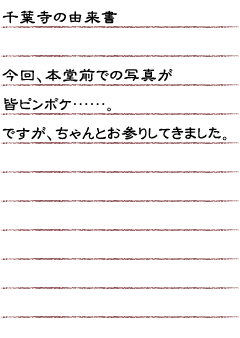 千葉寺の由来書
今回、本堂前での写真が
皆ピンボケ……。
ですが、ちゃんとお参りしてきました。